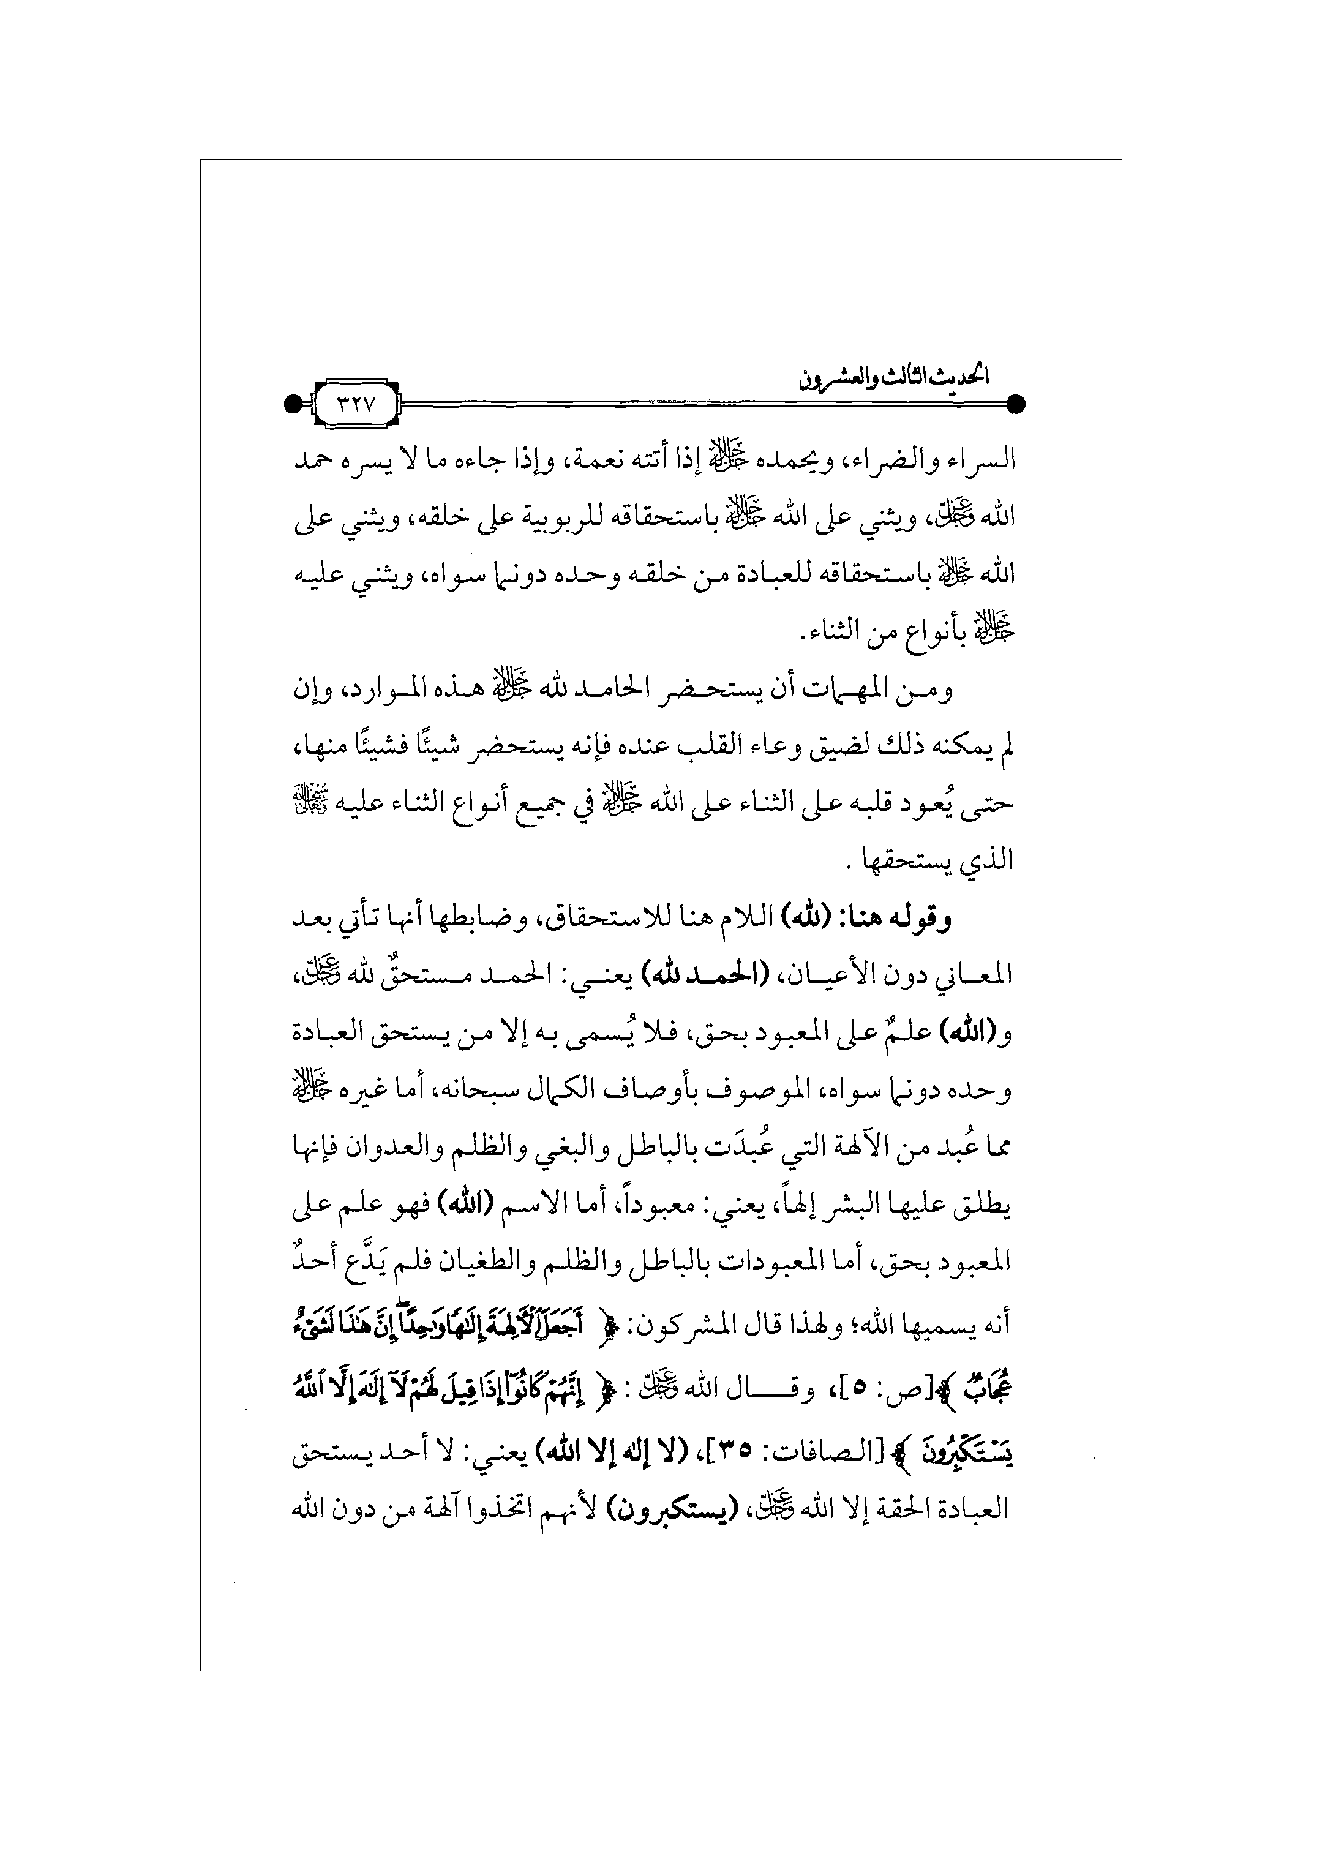 الحديث الثالث والعشرون
٣٢٧
السراء والضراء، ويحمده ﷻ إذا أتته نعمة، وإذا جاءه ما لا يسره حمد
الله عَزَّوَجَلَّ، ويثني على الله ﷻ باستحقاقه للربوبية على خلقه، ويثني على
الله ﷻ باستحقاقه للعبادة من خلقه وحده دونما سواه، ويثني عليه
ﷻ بأنواع من الثناء.
ومن المهمات أن يستحضر الحامد لله ﷻ هذه الموارد، وإن
لم يمكنه ذلك لضيق وعاء القلب عنده فإنه يستحضر شيئًا فشيئًا منها،
حتى يُعود قلبه على الثناء على الله ﷻ في جميع أنواع الثناء عليه
الذي يستحقها .
وقوله هنا: (لله) اللام هنا للاستحقاق، وضابطها أنها تأتي بعد
المعاني دون الأعيان، (الحمد لله) يعني: الحمد مستحقٌ لله عَزَّوَجَلَّ،
و(الله) علمٌ على المعبود بحق، فلا يُسمى به إلا من يستحق العبادة
وحده دونما سواه، الموصوف بأوصاف الكمال سبحانه، أما غيره ﷻ
مما عُبد من الآلهة التي عُبدَت بالباطل والبغي والظلم والعدوان فإنها
يطلق عليها البشر إلهاً، يعني: معبوداً، أما الاسم (الله) فهو علم على
المعبود بحق، أما المعبودات بالباطل والظلم والطغيان فلم يَدَّع أحدٌ
أنه يسميها الله؛ ولهذا قال المشركون: ﴿ أَجَعَلَ ٱلْأَلِهَةَ إِلَٰهًا وَٰحِدًا ۖ إِنَّ هَٰذَا لَشَىْءٌ
عُجَابٌ ﴾[ص: ٥]، وقال الله عَزَّوَجَلَّ : ﴿ إِنَّهُمْ كَانُوٓا۟ إِذَا قِيلَ لَهُمْ لَآ إِلَٰهَ إِلَّا ٱللَّهُ
يَسْتَكْبِرُونَ ﴾[الصافات: ٣٥]، (لا إله إلا الله) يعني: لا أحد يستحق
العبادة الحقة إلا الله عَزَّوَجَلَّ، (يستكبرون) لأنهم اتخذوا آلهة من دون الله